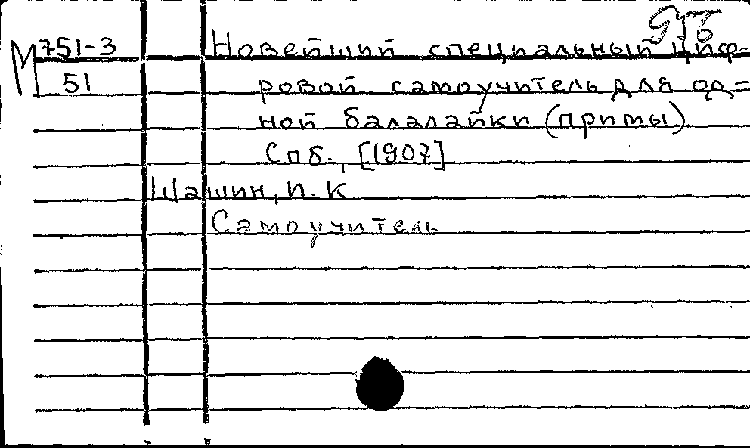 М 751-3
51
Новейший специальный циф-
ровой самоучитель для од=
ной балалайки (примы)
Спб., [1907]
Шашин, П. К
Самоучитель